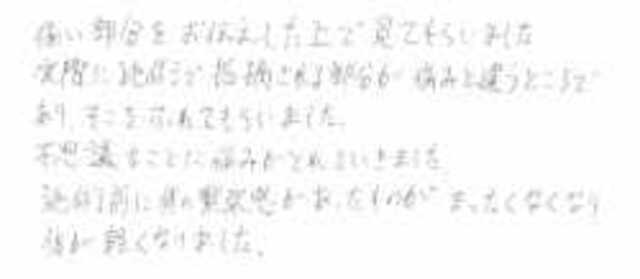 痛い部分をお伝えした上で見てもらいました
実際に施術で指摘される部分が痛みと違うところで
あり、そこを ほぐしてもらいました。
不思議なことに痛みがとれていきました
施術前に 緊張感があったものが まったくなくなり
軽くなりました。